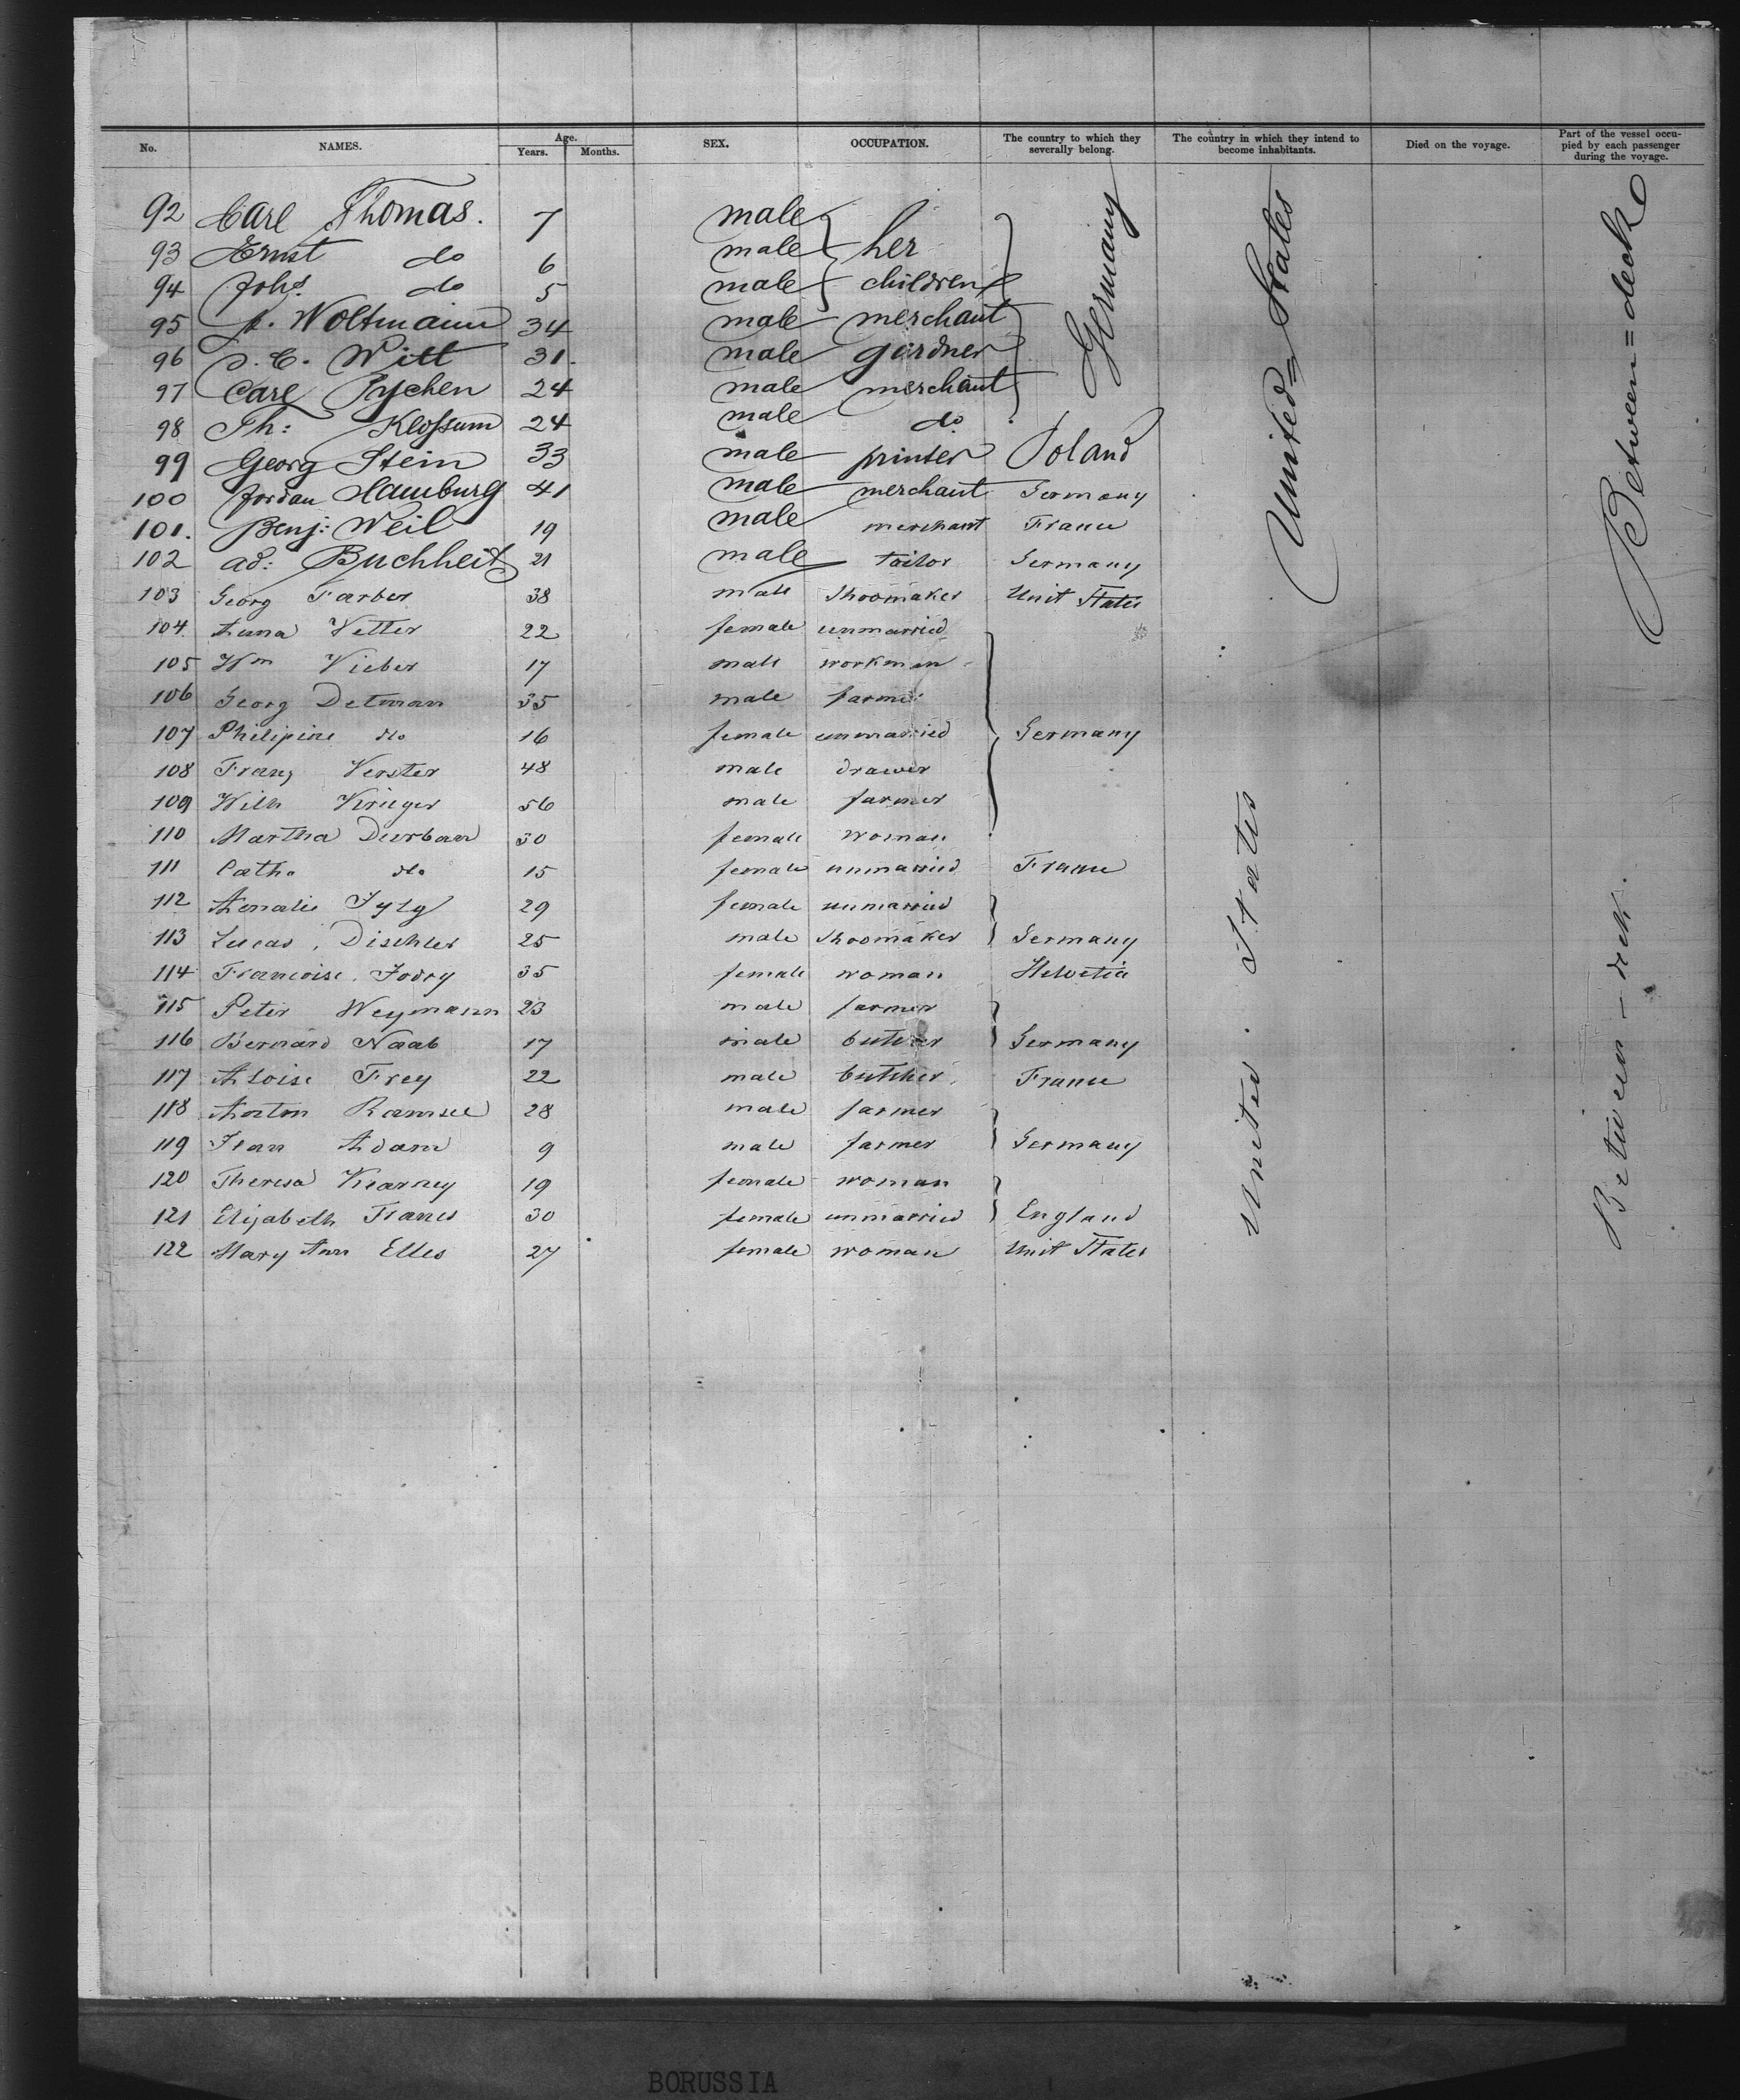 No. NAMES. Age. Years. Months. SEX. OCCUPATION. The country to which they severally belong. The country in which they intend to become inhabitants. Died on the voyage. Part of the vessel occupied by each passenger during the voyage.
92 Carl Thomas. 7 male her
93 Ernst do 6 male children
94 Johs. do 5 male
95 Woltmann 34 male merchant
96 C. Witt 31. male gardner
97 Carl Pychen 24 male merchant
98 Th: Klossum 24 male do
Germany
99 Georg Stein 33 male printer Poland
100 Jordan Hamburg 41 male merchant Germany
101. Benj: Weil 19 male merchant France
102 ad: Buchheit 21 male tailor Germany
103 Georg Farber 38 male Shoomaker Unit States
United=States
Between=deck
104. Anna Vetter 22 female unmarried
105 Wm Vieber 17 male workman
106 Georg Detman 35 male farmer
107 Philipine do 16 female unmarried Germany
108 Franz Verster 48 male drawer
109 Wilh Krieger 56 male farmer
110 Martha Durban 30 female woman
111 Cath. do. 15 female unmarried France
112 Amalie 29 female unmarried
113 Lucas Dischler 25 male Shoomaker Germany
114 Francoise Jodry 35 female woman Helvetia
115 Peter Weymann 23 male farmer
116 Bernard Naab 17 male butcher Germany
117 Aloise Frey 22 male butcher France
118 Anton Ramsee 28 male farmer
119 Jean Adam 9 male farmer Germany
120 Theresa Kearney 19 female woman
121 Elizabeth Franes 30 female unmarried England
122 Mary Ann Elles 27 female woman Unit States
United States
Between-deck.
BORUSSIA